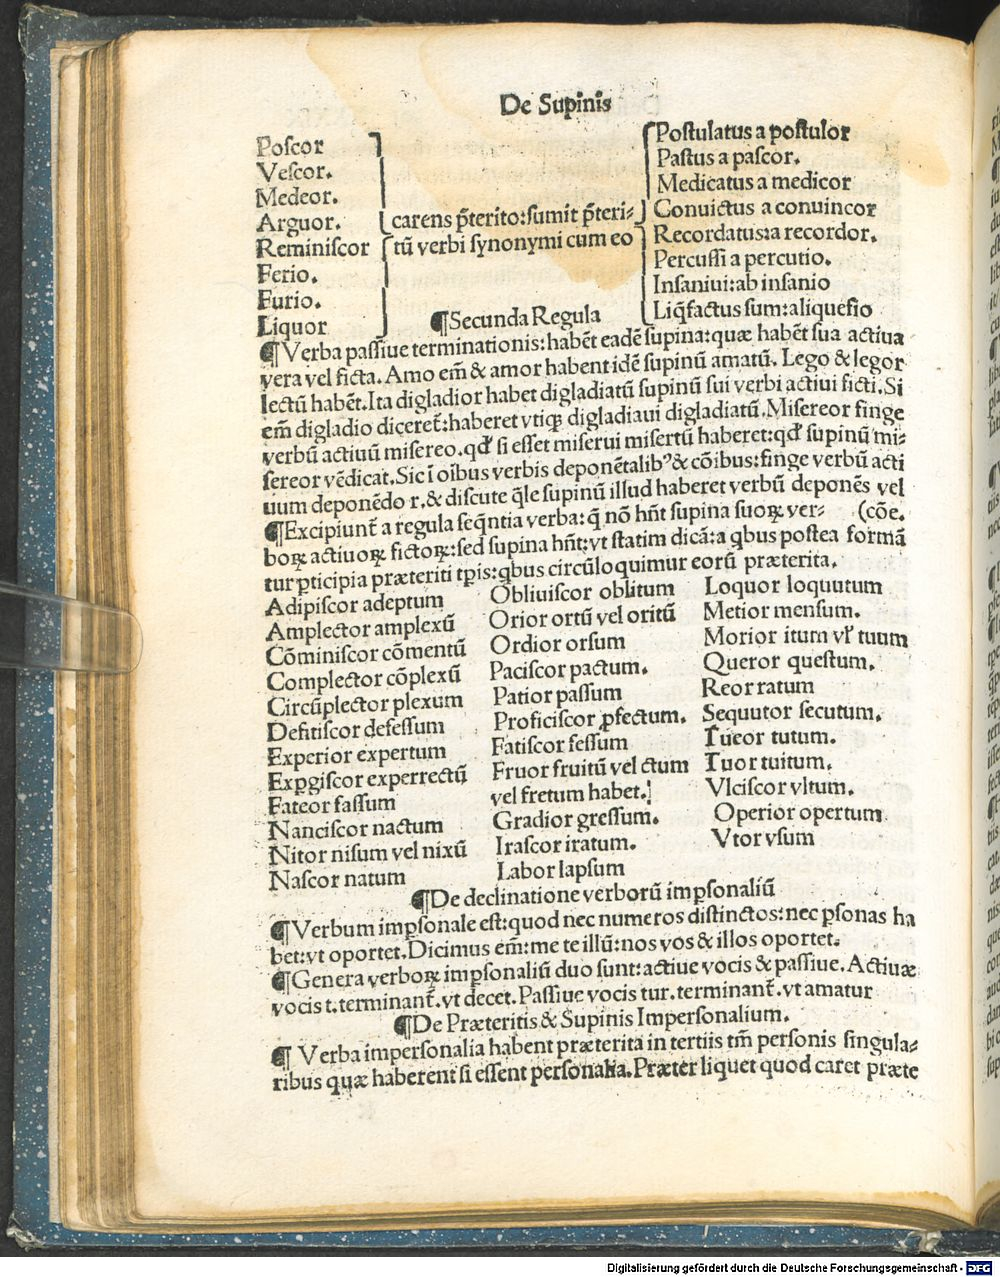 De Supinis
Poſcor
Veſcor.
Medeor.
Arguor.
Reminiſcor
Ferio.
Furio.
Liquor
carens p̃terito:ſumit p̃teri⸗
tũ verbi ſynonymi cum eo
Poſtulatus a poſtulor
Paſtus a paſcor.
Medicatus a medicor
Conuictus a conuincor
Recordatus:a recordor.
Percuſſi a percutio.
Inſaniui:ab inſanio
Liq̃factus ſum:a liquefio
¶Secunda Regula
¶Verba paſſiue terminationis:habẽt eadẽ ſupina:quæ habẽt ſua actiua
vera vel ficta. Amo em̃ & amor habent idẽ ſupinũ amatũ. Lego & legor
lectũ habẽt. Ita digladior habet digladiatũ ſupinũ ſui verbi actiui ficti. Si
em̃ digladio diceret̃:haberet vtiqꝫ digladiaui digladiatũ. Miſereor finge
verbũ actiuũ miſereo. qđ ſi eſſet miſerui miſertũ haberet:qđ ſupinũ mi⸗
ſereor vẽdicat. Sic ĩ oĩbus verbis deponẽtalibꝰ & cõibus:finge verbũ acti
uum deponẽdo r. & diſcute q̃le ſupinũ illud haberet verbũ deponẽs vel
(cõe.
¶Excipiunt̃ a regula ſeq̃ntia verba: q̃ nõ hñt ſupina ſuoꝝ ver⸗
boꝝ actiuoꝝ fictoꝝ:ſed ſupina hñt:vt ſtatim dicã: a qbus poſtea formã
tur ꝑticipia præteriti tꝑis:qbus circũloquimur eorũ præterita.
Adipiſcor adeptum
Amplector amplexũ
Cõminiſcor cõmentũ
Complector cõplexũ
Circũplector plexum
Defitiſcor defeſſum
Experior expertum
Expgiſcor experrectũ
Fateor faſſum
Nanciſcor nactum
Nitor niſum vel nixũ
Naſcor natum
Obliuiſcor oblitum
Orior ortũ vel oritũ
Ordior orſum
Paciſcor pactum.
Patior paſſum
Proficiſcor ꝓfectum.
Fatiſcor feſſum
Fruor fruitũ vel ctum
vel fretum habet.
Gradior greſſum.
Iraſcor iratum.
Labor lapſum
Loquor loquutum
Metior menſum.
Morior itum vꝉ tuum
Queror queſtum.
Reor ratum
Sequutor ſecutum.
Tueor tutum.
Tuor tuitum.
Vlciſcor vltum.
Operior opertum
Vtor vſum
¶De declinatione verborũ imꝑſonaliũ
¶Verbum imꝑſonale eſt:quod nec numeros diſtinctos:nec ꝑſonas ha
bet:vt oportet. Dicimus em̃:me te illũ:nos vos & illos oportet.
¶Genera verboꝝ imꝑſonaliũ duo ſunt:actiue vocis & paſſiue. Actiuæ
vocis t. terminant̃. vt decet. Paſſiue vocis tur. terminant̃. vt amatur
¶De Præteritis & Supinis Imperſonalium.
¶ Verba imperſonalia habent præterita in tertiis tm̃ perſonis ſingula⸗
ribus quæ haberent ſi eſſent perſonalia. Præter liquet quod caret præte
Digitalisierung gefördert durch die Deutsche Forschungsgemeinschaft - DFG